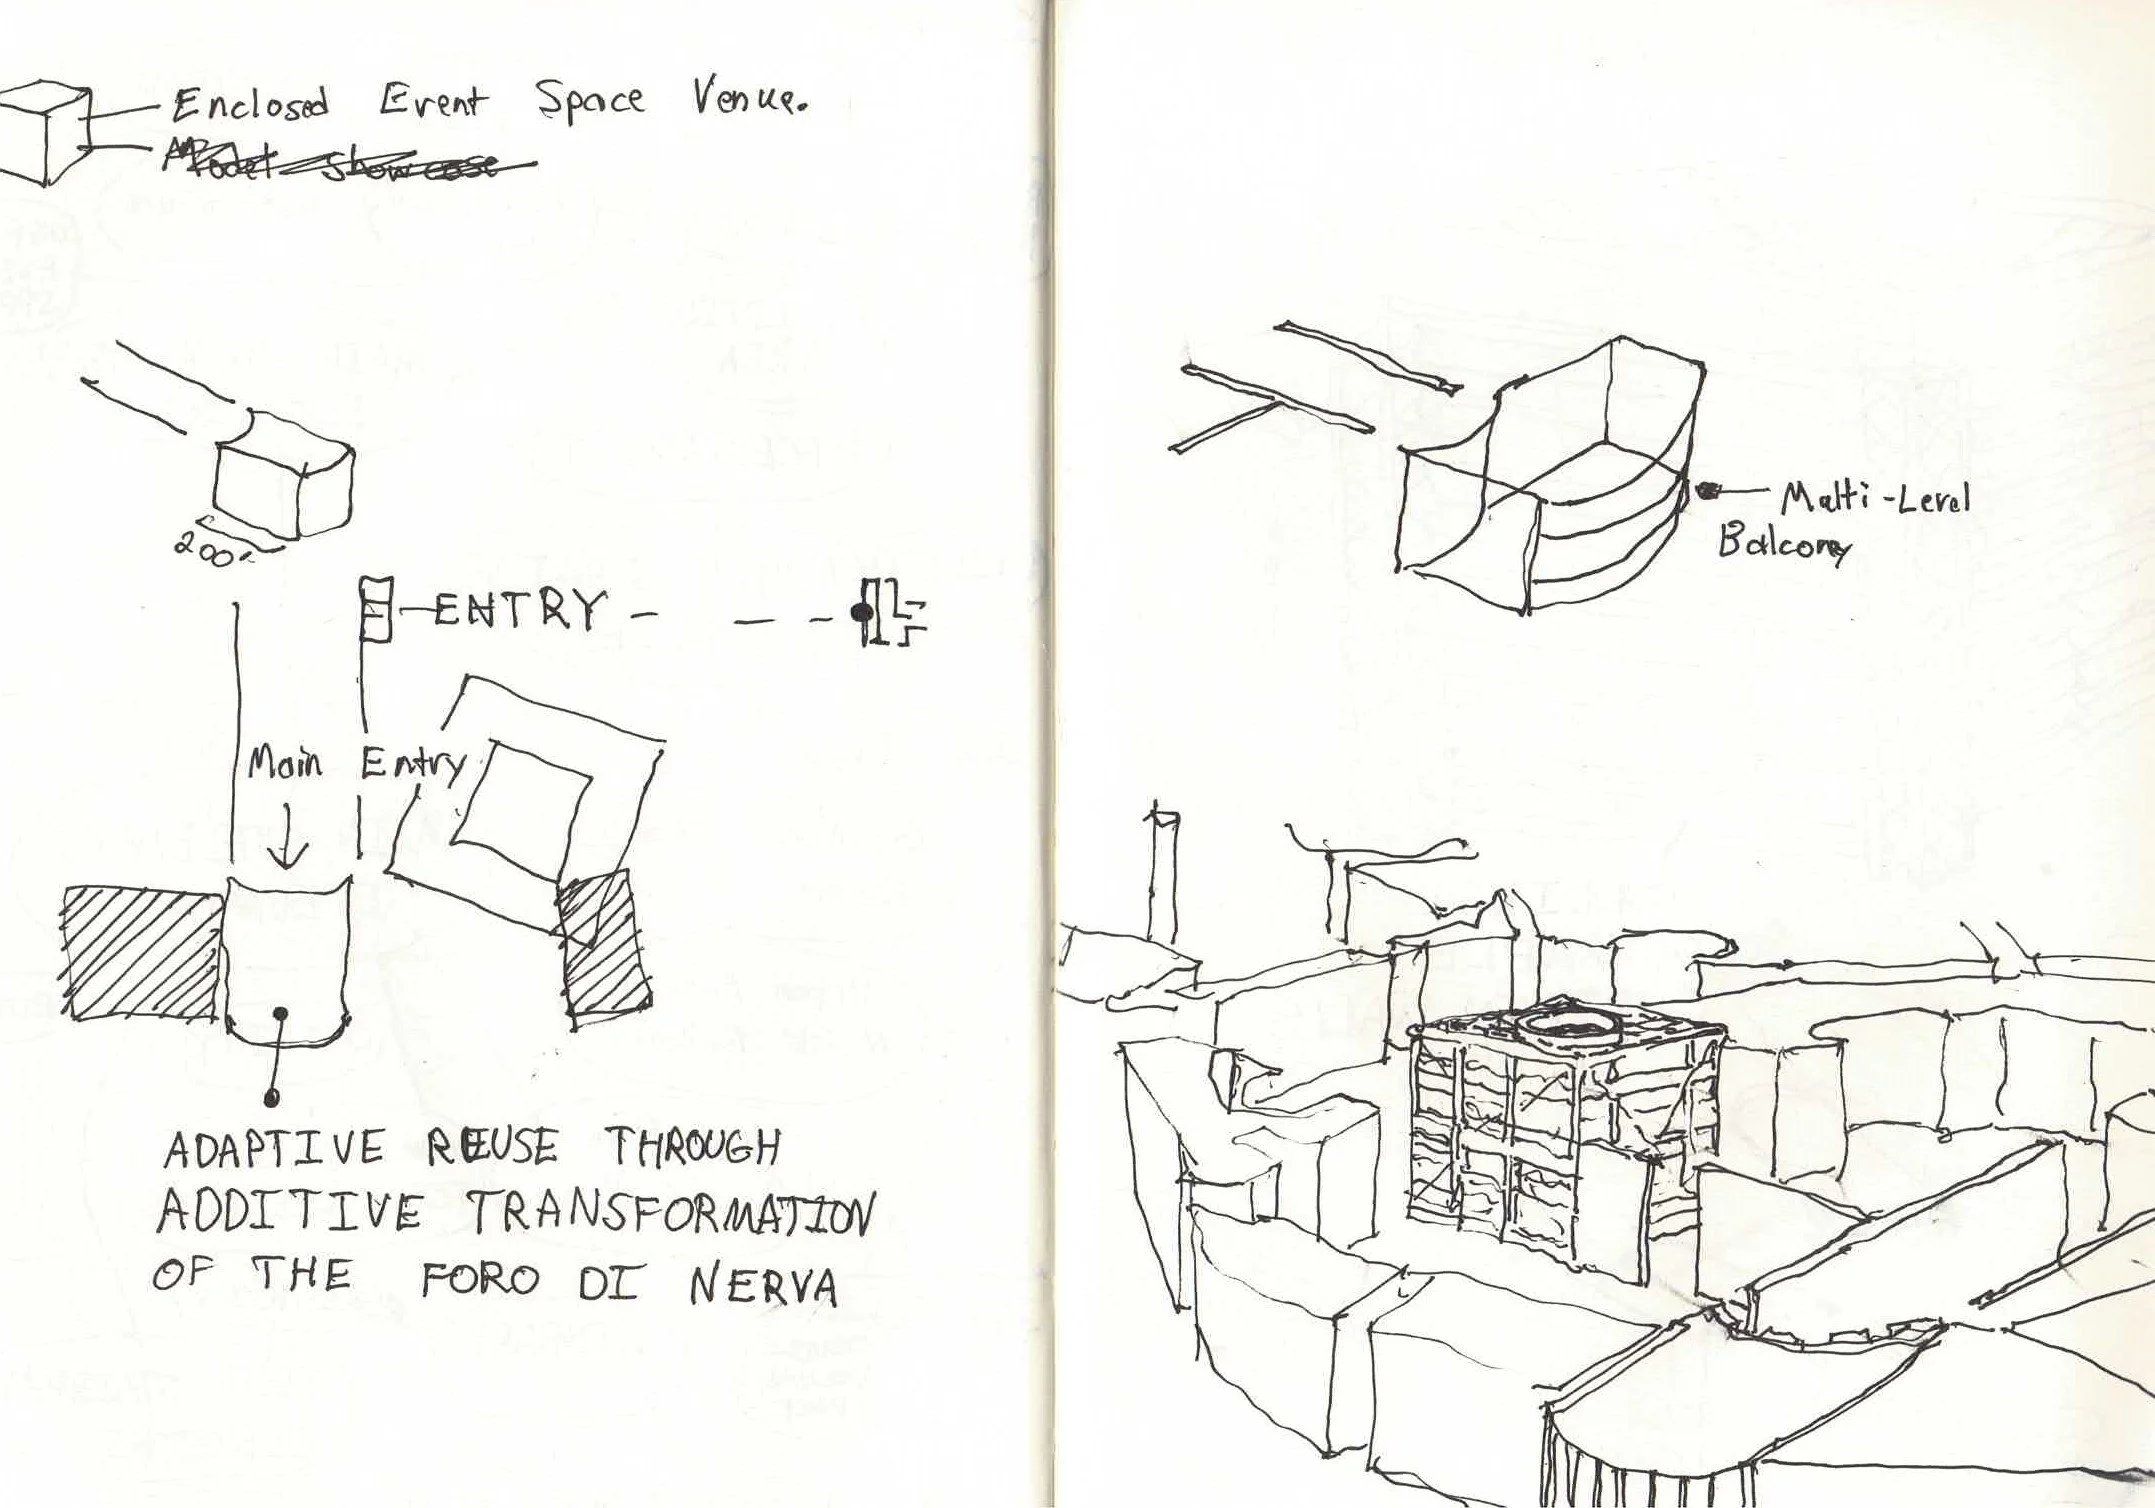 Enclosed Event Space Venue.
Model Showcase
200'
ENTRY
Main Entry
ADAPTIVE REUSE THROUGH
ADDITIVE TRANSFORMATION
OF THE FORO DI NERVA
Multi-Level
Balcony